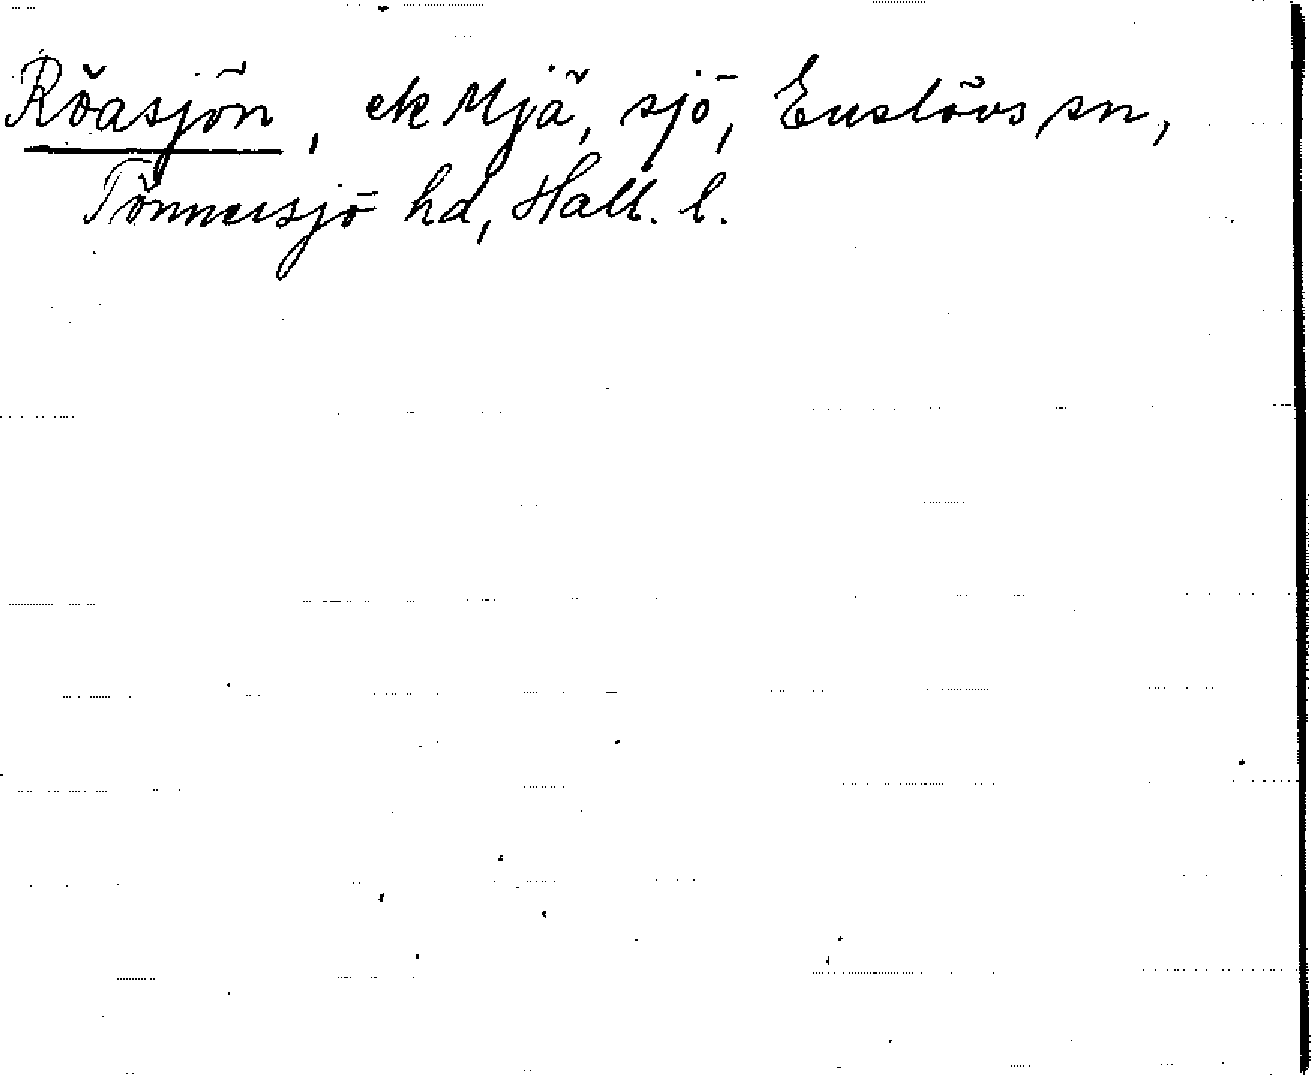 Röasjön, ek Mjä, sjö, Enslövs sn,
Tönnersjö hd, Hall. l.